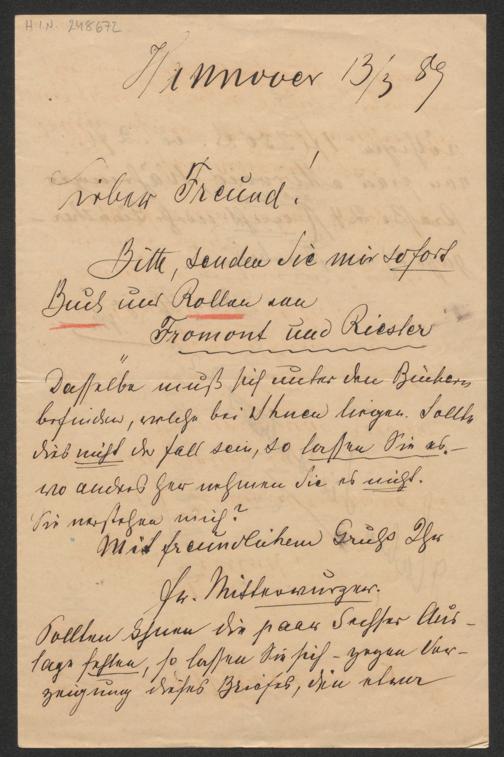 H.I.N. 248672
Hannover 13/3 89
Lieber Freund!
Bitte, senden Sie mir sofort
Buch und Rollen von
Fromont und Riesler
Dasselbe muß sich unter den Büchern
befinden, welche bei Ihnen liegen. Sollte
dies nicht der Fall sein, so lassen Sie es.–
wo anders her nehmen Sie es nicht.
Sie verstehen mich?
Mit freundlichem Gruß Ihr
Fr. Mitterwurzer.
Sollten Ihnen die paar Sechser Aus-
lage fehlen, so lassen Sie sich – gegen Vor-
zeigung dieses Briefes, den etwa